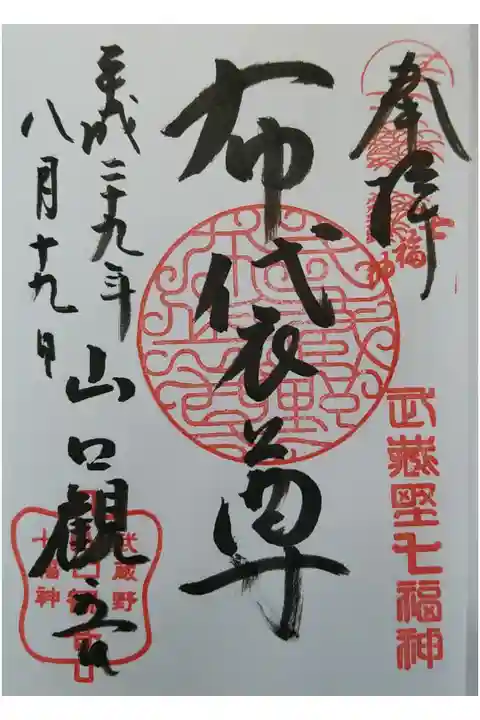 奉拝
七福神
武蔵野七福神
布袋尊
平成二十九年
八月十九日
山口観音
武蔵野
七福神